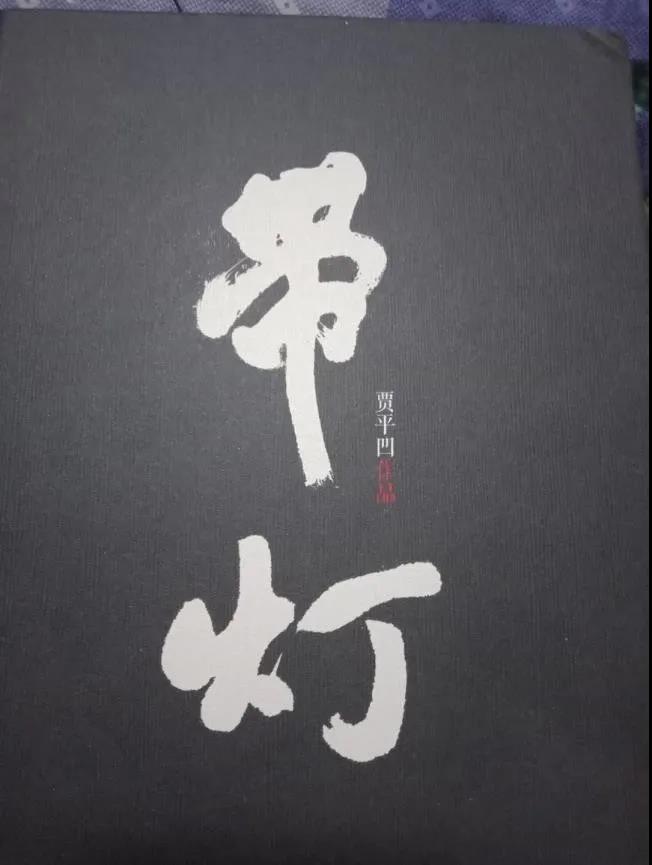 带灯
贾平凹作品